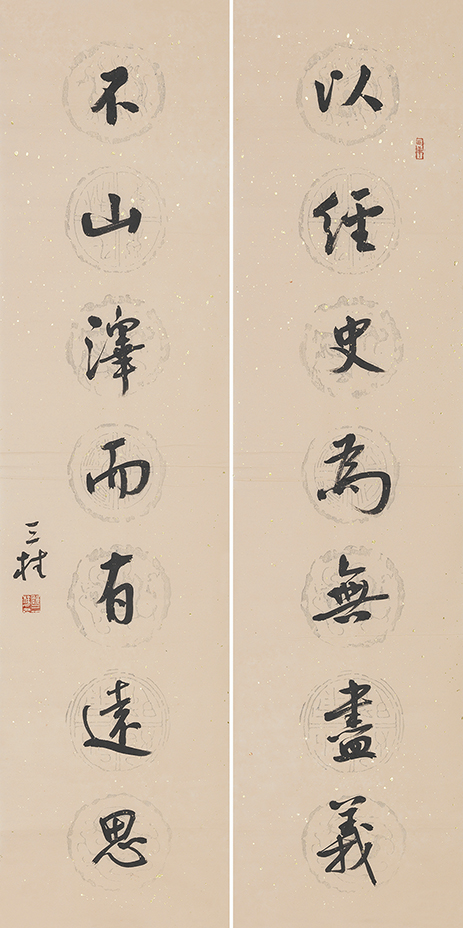 以經史為無盡義
不山澤而有遠思
三村